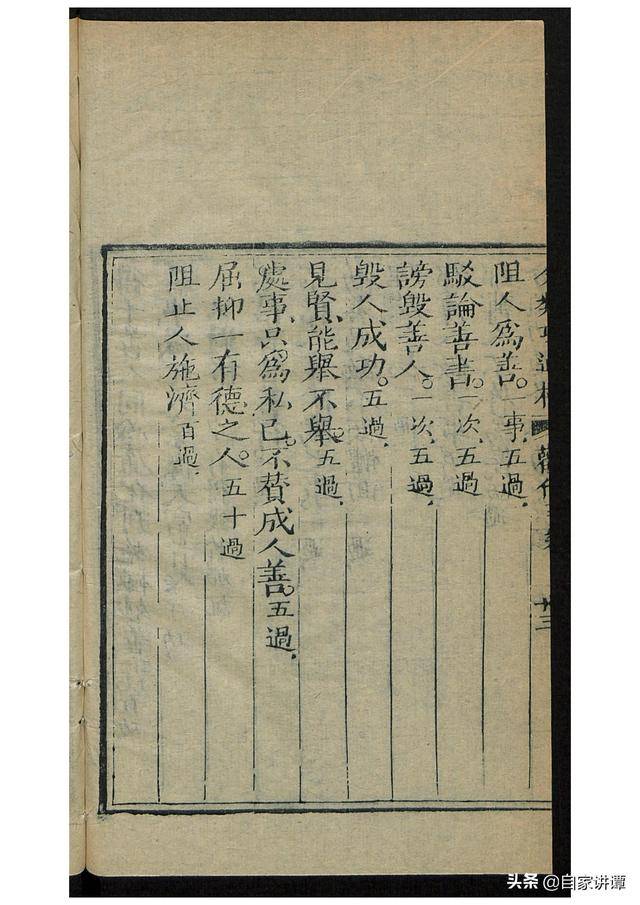 阻人為善。一事，五過，
駁論善書。一次，五過
謗毀善人。一次，五過，
毀人成功。五過，
見賢，能舉不舉。五過，
處事，只為私己。不贊成人善。五過，
屈抑一有德之人。五十過
阻止人施濟百過，
廿三
头条 @自家讲谭